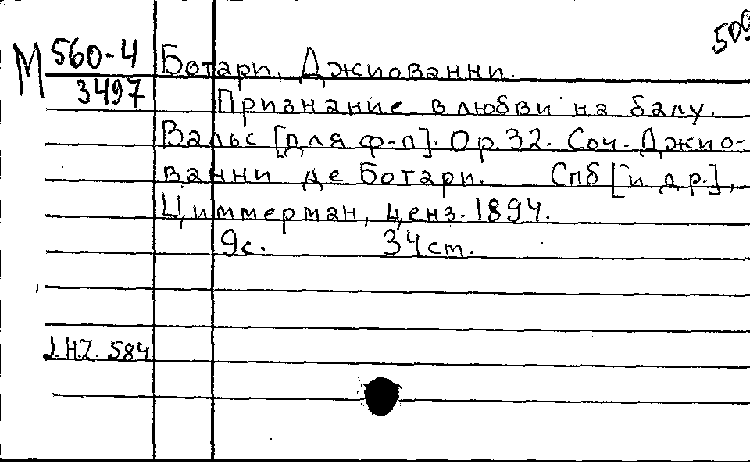 509
М 560-4
3497
Ботари, Джиованни.
Признание в любви на балу.
Вальс [для ф-п]. Op. 32. Соч. Джио-
ванни де Ботари. Спб [и др.],
Циммерман, ценз. 1894.
9с. 34 ст.
J.HZ. 584